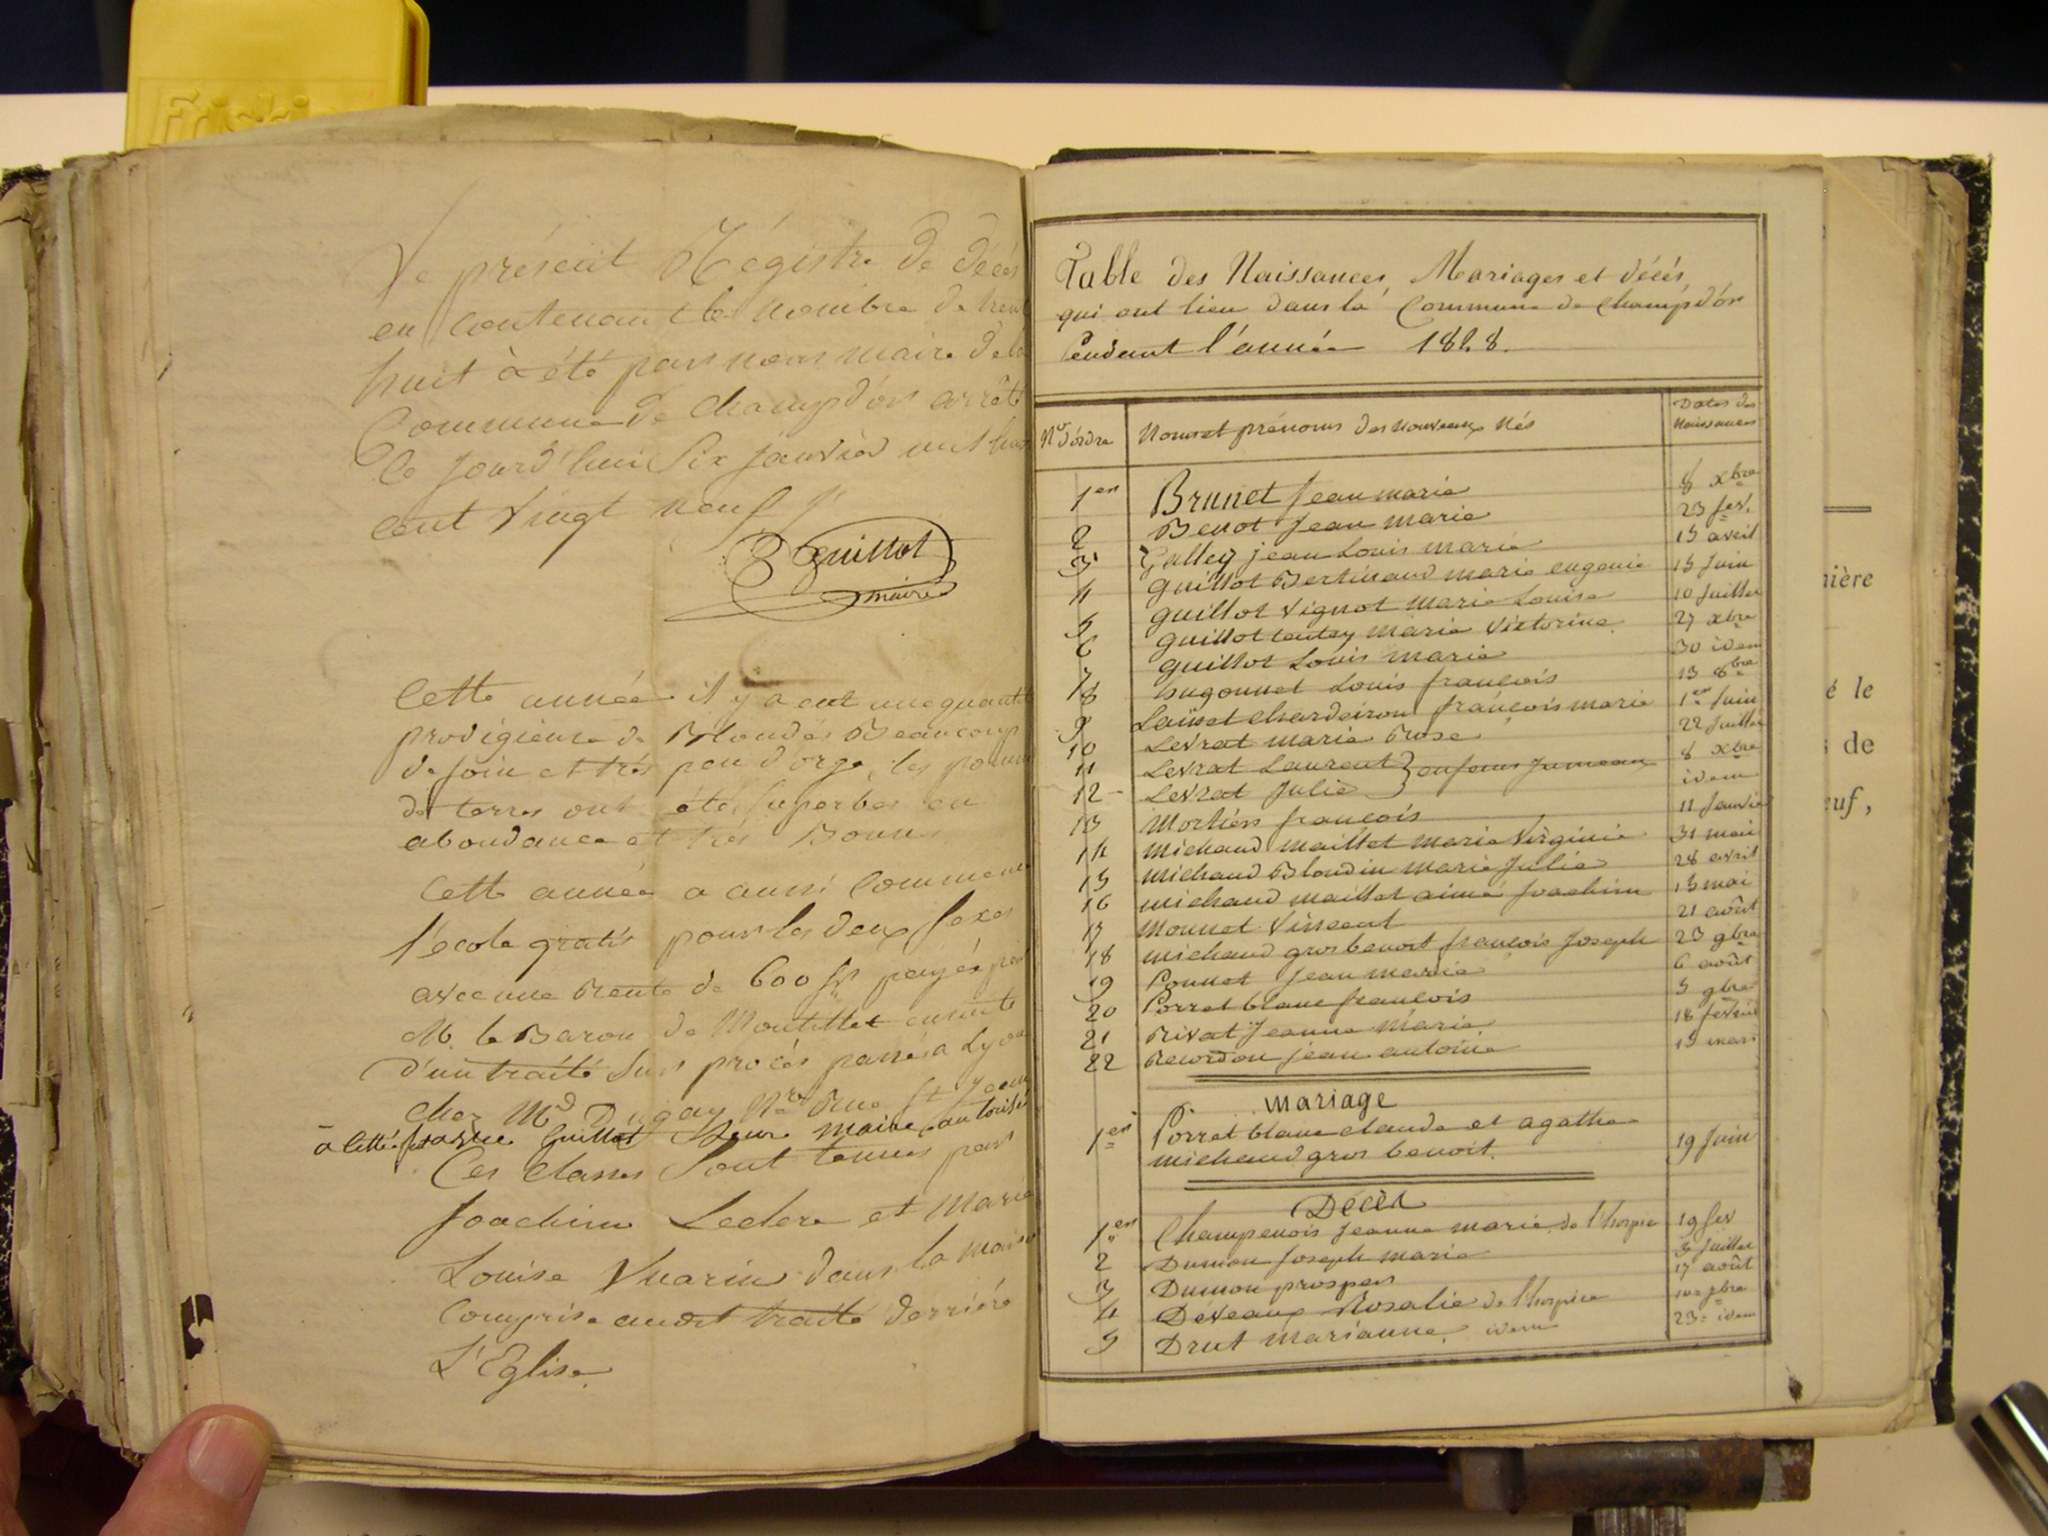 Friskies
Le présent Régistre de décés
en contenant le nombre de trent
huit à été par nous maire de la
Commune de Champdor arrêté
le jourd'hui Six janvier mil huit
cent vingt neuf
Guillot
maire
Cette année il y a eut une quantité
prodigieuse de Blondés Beaucoup
de foin et trés peu d'orge, les pomm
de terres ont étés superbes en
abondance et trés Bonnes
Cette année a aussi commencé
l'école gratis pour les deux sexes
avec une Rente de 600 f payés par
M. le Baron de Montillet ensuite
d'un traité sur procés passé à Lyon
chez Md Dugay Nre Rue St Jean
à cette Guillot Sieur maire autorisé
Ces classes sont tenues par
Joachim Leclerc et Marie
Louise Vuarin dans la maison
comprise audit traité derriére
L'Eglise.
Table des Naissances, Mariages et décés
qui ont lieu dans la Commune de Champdor
Pendant l'année 1828.
No d'ordre Noms et prénoms des nouveaux Nés Dates des Naissances
1er Brunet Jean marie 8 xbre
2 Benot Jean marie 23 fev.
3 Galley jean Louis marie 15 avril
4 Guillot Bertinand marie eugenie 15 Juin
5 Guillot Vignot marie Louise 10 Juillet
6 Guillot tentey marie Victorine 27 xbre
7 Guillot Louis marie 30 idem
8 hugonnet Louis françois 13 8bre
9 Laisset Chardeiron françois marie 1er Juin
10 Levrat marie Rose 22 Juillet
11 Levrat Laurent } enfans jumeaux 8 xbre
12 Levrat Julie idem
13 Mortier françois 11 Janvier
14 Michaud maillet marie Virginie 31 mai
15 Michaud Blondin marie Julie 28 avril
16 michaud maillet aimé Joachim 15 mai
17 Monnet Vincent 21 août
18 michaud gros benoit françois Joseph 23 9bre
19 Ponnet Jean marie 6 août
20 Porret blanc françois 5 9bre
21 Rivat Jeanne Marie 18 fevrier
22 Recordon jean antoine 15 mars
Mariage
1er Porret blanc claude et agathe
michaud gros benoit. 19 Juin
Décès
1er Champenois Jeanne marie de l'hospice 19 fev
2 Dumon Joseph marie 3 Juillet
3 Dumon prosper 17 août
4 Déveaux Rosalie de l'hospice 10 9bre
5 Drut marianne idem 23 idem
nière
é le
de
euf,